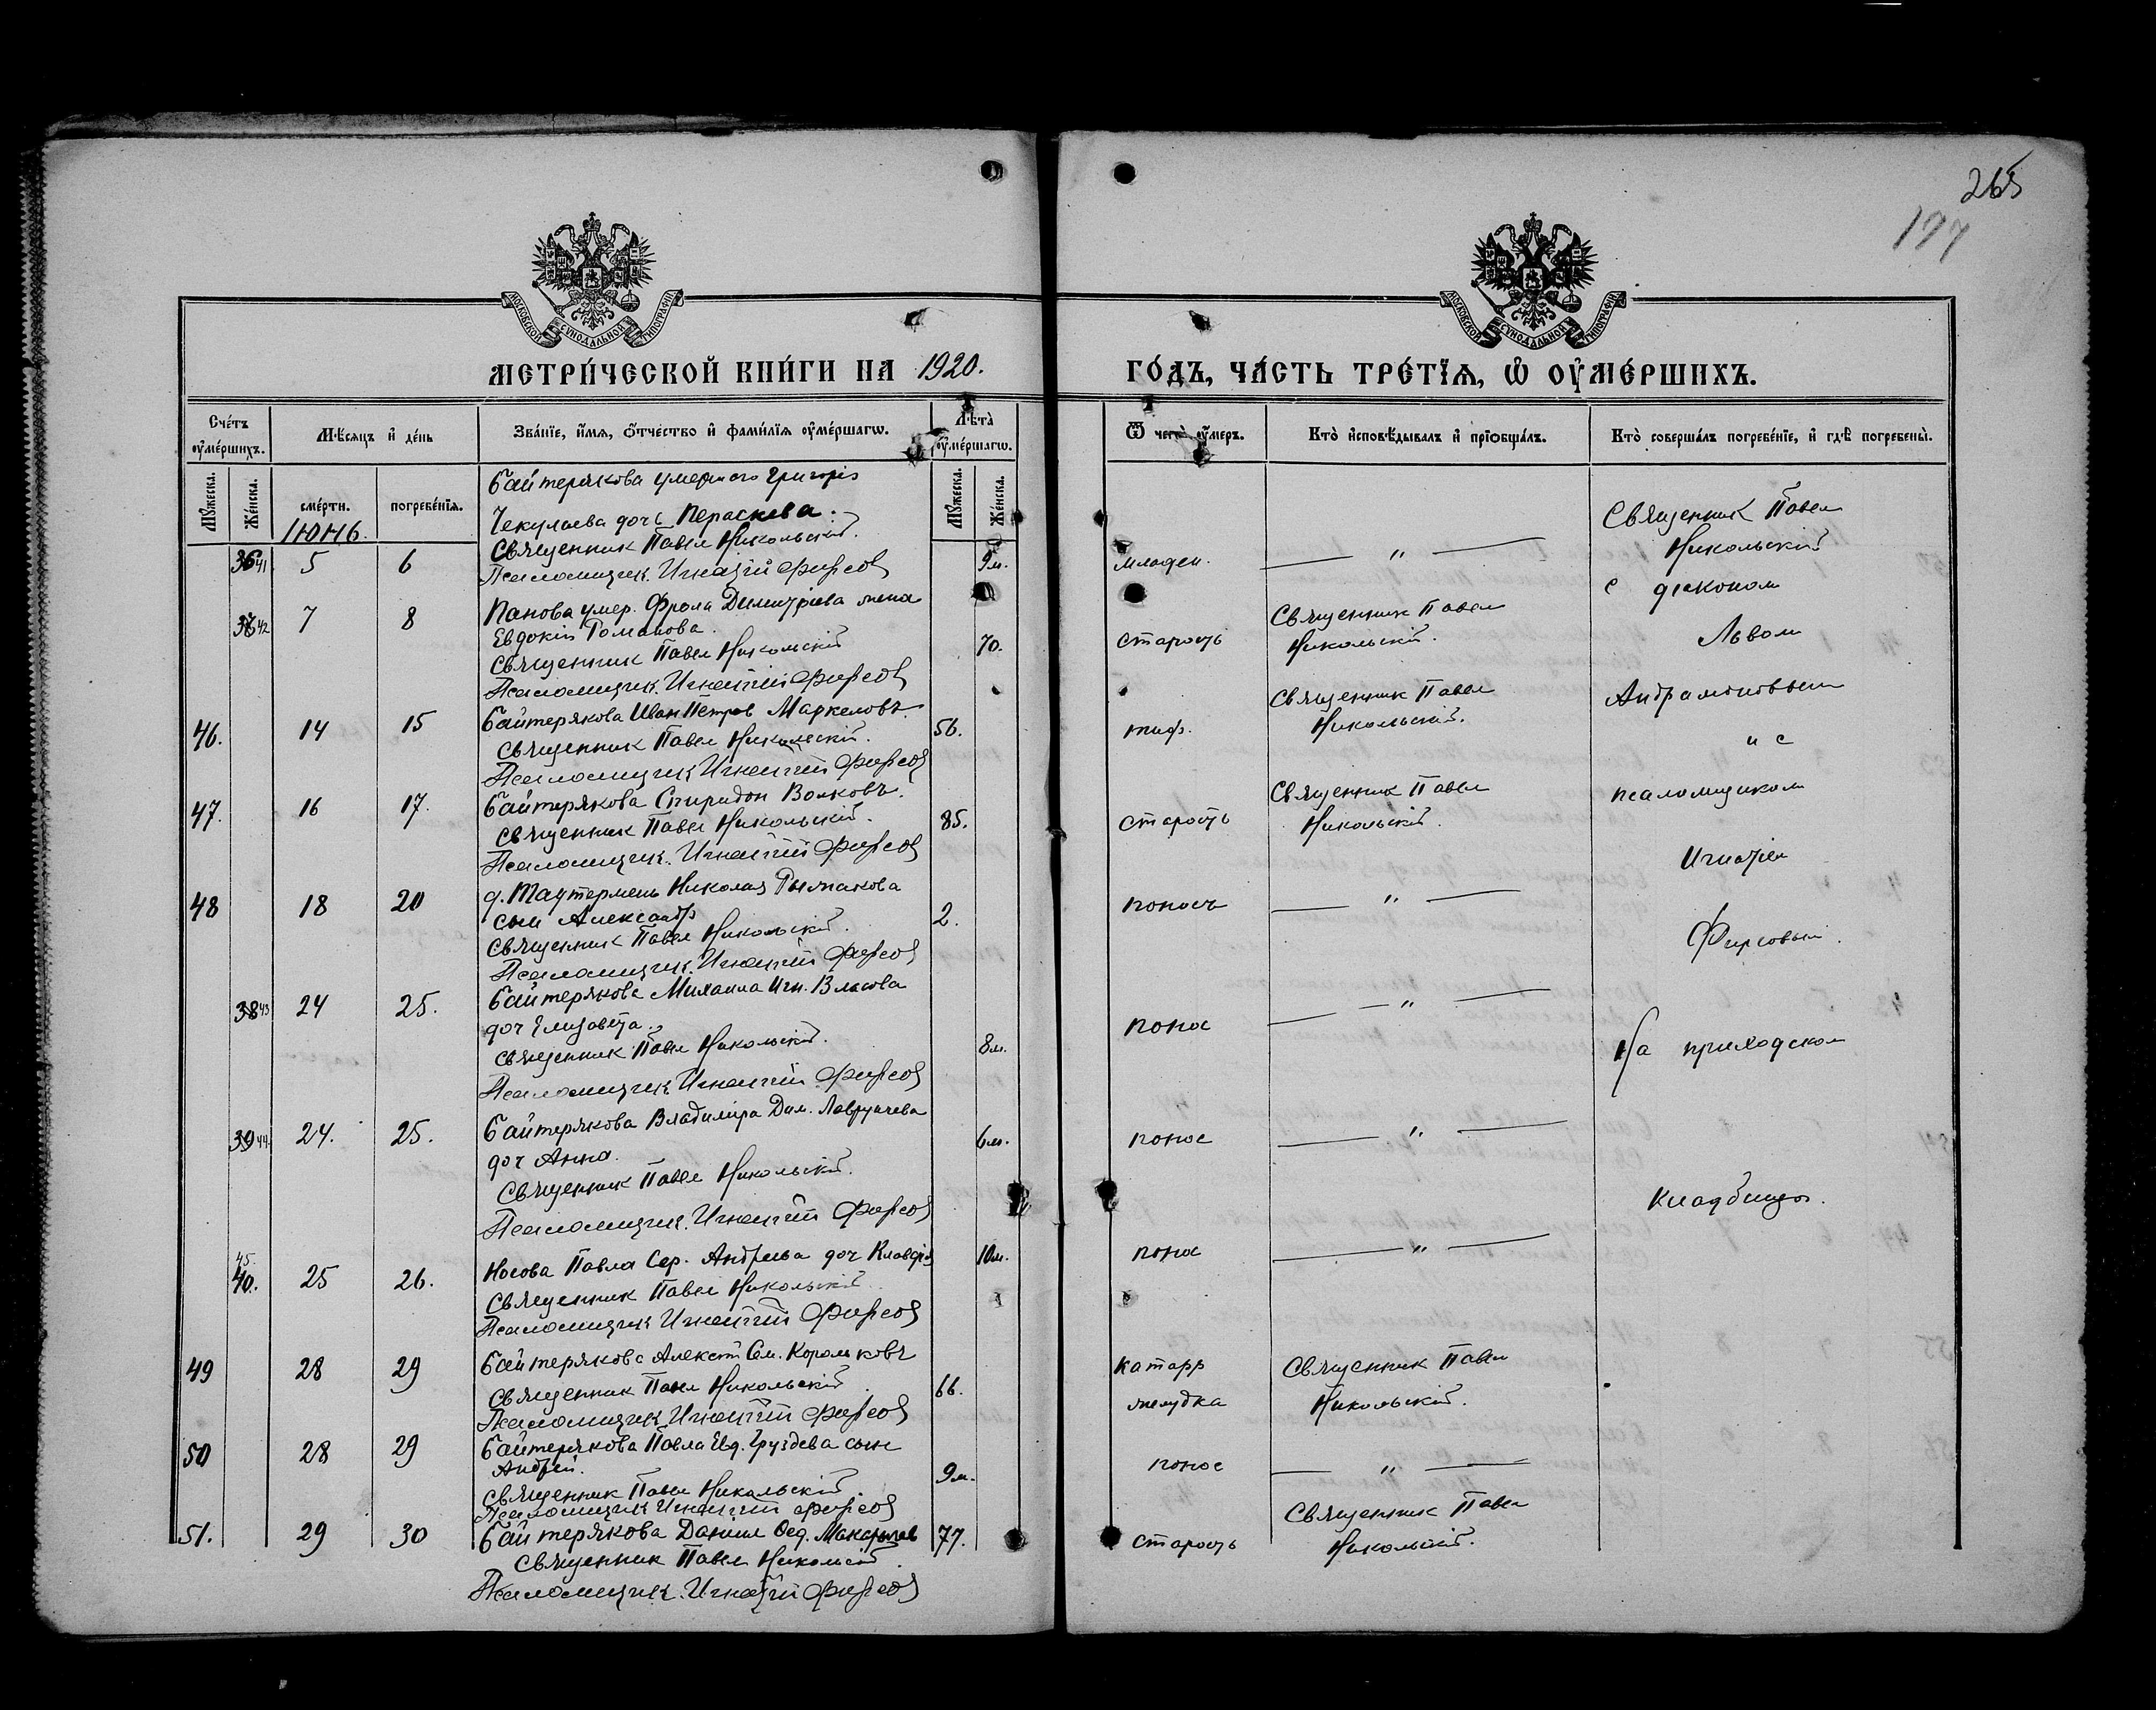 265
197
МОСКОВСКОЙ СѴНОДАЛЬНОЙ ТИПОГРАФІИ
МОСКОВСКОЙ СѴНОДАЛЬНОЙ ТИПОГРАФІИ
МЕТРИ́ЧЕСКОЙ КНИ́ГИ НА 1920.
ГО́ДЪ, ЧА́СТЬ ТРЕ́ТЇѦ, Ѡ҆ ОУ҆МЕ́РШИХЪ.
Сче́тъ оу҆ме́ршихъ.
Мѣ́сяцъ и҆ де́нь
Зва́нїе, и҆́мя, ѻ҆́тчество и҆ фами́лїя оу҆ме́ршагѡ.
Лѣ́та оу҆ме́ршагѡ.
Ѿ чегѡ̀ оу҆́меръ.
Кто̀ и҆сповѣ́дывалъ и҆ прїѡбща́лъ.
Кто̀ соверша́лъ погребе́нїе, и҆ гдѣ̀ погребены̀.
Мꙋ́жеска.
Же́нска.
сме́рти.
погребе́нїя.
Мꙋ́жеска.
Же́нска.
Іюнь.
Байтерякова умершого Григорія
Чекулаева дочь Пераскева.
Священник Павел Никольский.
Псаломщик. Игнатій Фирсов
36 41 5 6 9 м. младен. — " —
Священник Павел
Никольский
с діаконом
Львом
Андрамоновым
и с
псаломщиком
Игнатіем
Фирсовым.
На приходском
кладбище.
42 7 8
Панова умер. Фрола Димитріева жена
Евдокія Романова.
Священник Павел Никольский
Псаломщик. Игнатій Фирсов
70. старость
Священник Павел
Никольский.
46. 14 15
Байтерякова Иван Петров Маркеловъ.
Священник Павел Никольский.
Псаломщик Игнатій Фирсов
56. тиф.
Священник Павел
Никольский.
47. 16 17.
Байтерякова Спиридон Волковъ.
Священник Павел Никольский.
Псаломщик. Игнатій Фирсов
85. старость
Священник Павел
Никольский.
48 18 20
д. Таутермень Николая Рыжакова
сын Александр
Священник Павел Никольский.
Псаломщик. Игнатій Фирсов
2. поносъ — " —
38 43 24 25.
Байтерякова Михаила Игн. Власова
доч Елизавета.
Священник Павел Никольский.
Псаломщик Игнатій Фирсов
8 м. понос — " —
39 44 24. 25.
Байтерякова Владимира Дим. Лаврушева
доч Анна.
Священник Павел Никольский.
Псаломщик. Игнатій Фирсов
6 м. понос — " —
45
40. 25 26.
Носова Павла Сер. Андреева доч Клавдія
Священник Павел Никольский
Псаломщик Игнатій Фирсов
10 м. понос — " —
49 28 29
Байтерякова Алексей Сем. Корольковъ
Священник Павел Никольский
Псаломщик Игнатій Фирсов
66. катарр
желудка
Священник Павел
Никольский.
50 28 29
Байтерякова Павла Евд. Груздева сын
Андрей.
Священник Павел Никольский.
Псаломщик Игнатій Фирсов
9 м. понос — " —
51. 29 30
Байтерякова Даниил Фед. Макарычев
Священник Павел Никольский.
Псаломщик. Игнатій Фирсов
77. старость
Священник Павел
Никольский.